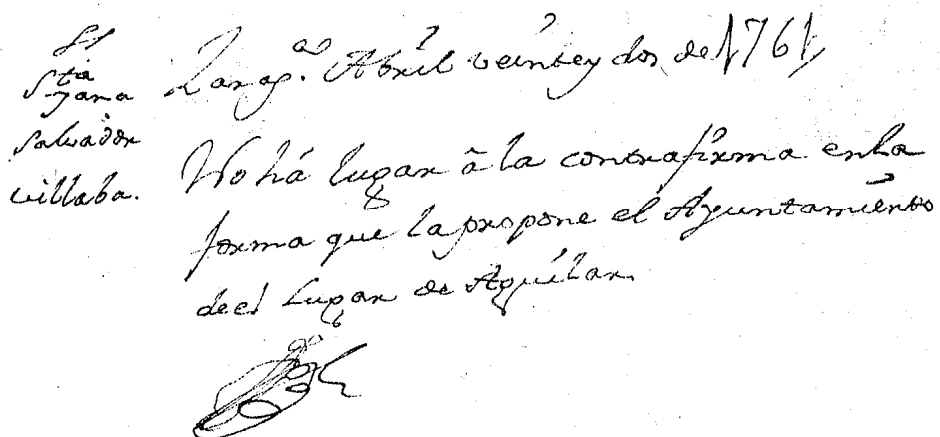 Sta
Jana
Salvador
villaba.
Zarag.ª Abril veintey dos de 1761,
No há lugar â la contrafirma enla
forma que la propone el Ayuntamiento
deel Lugar de Aguilar